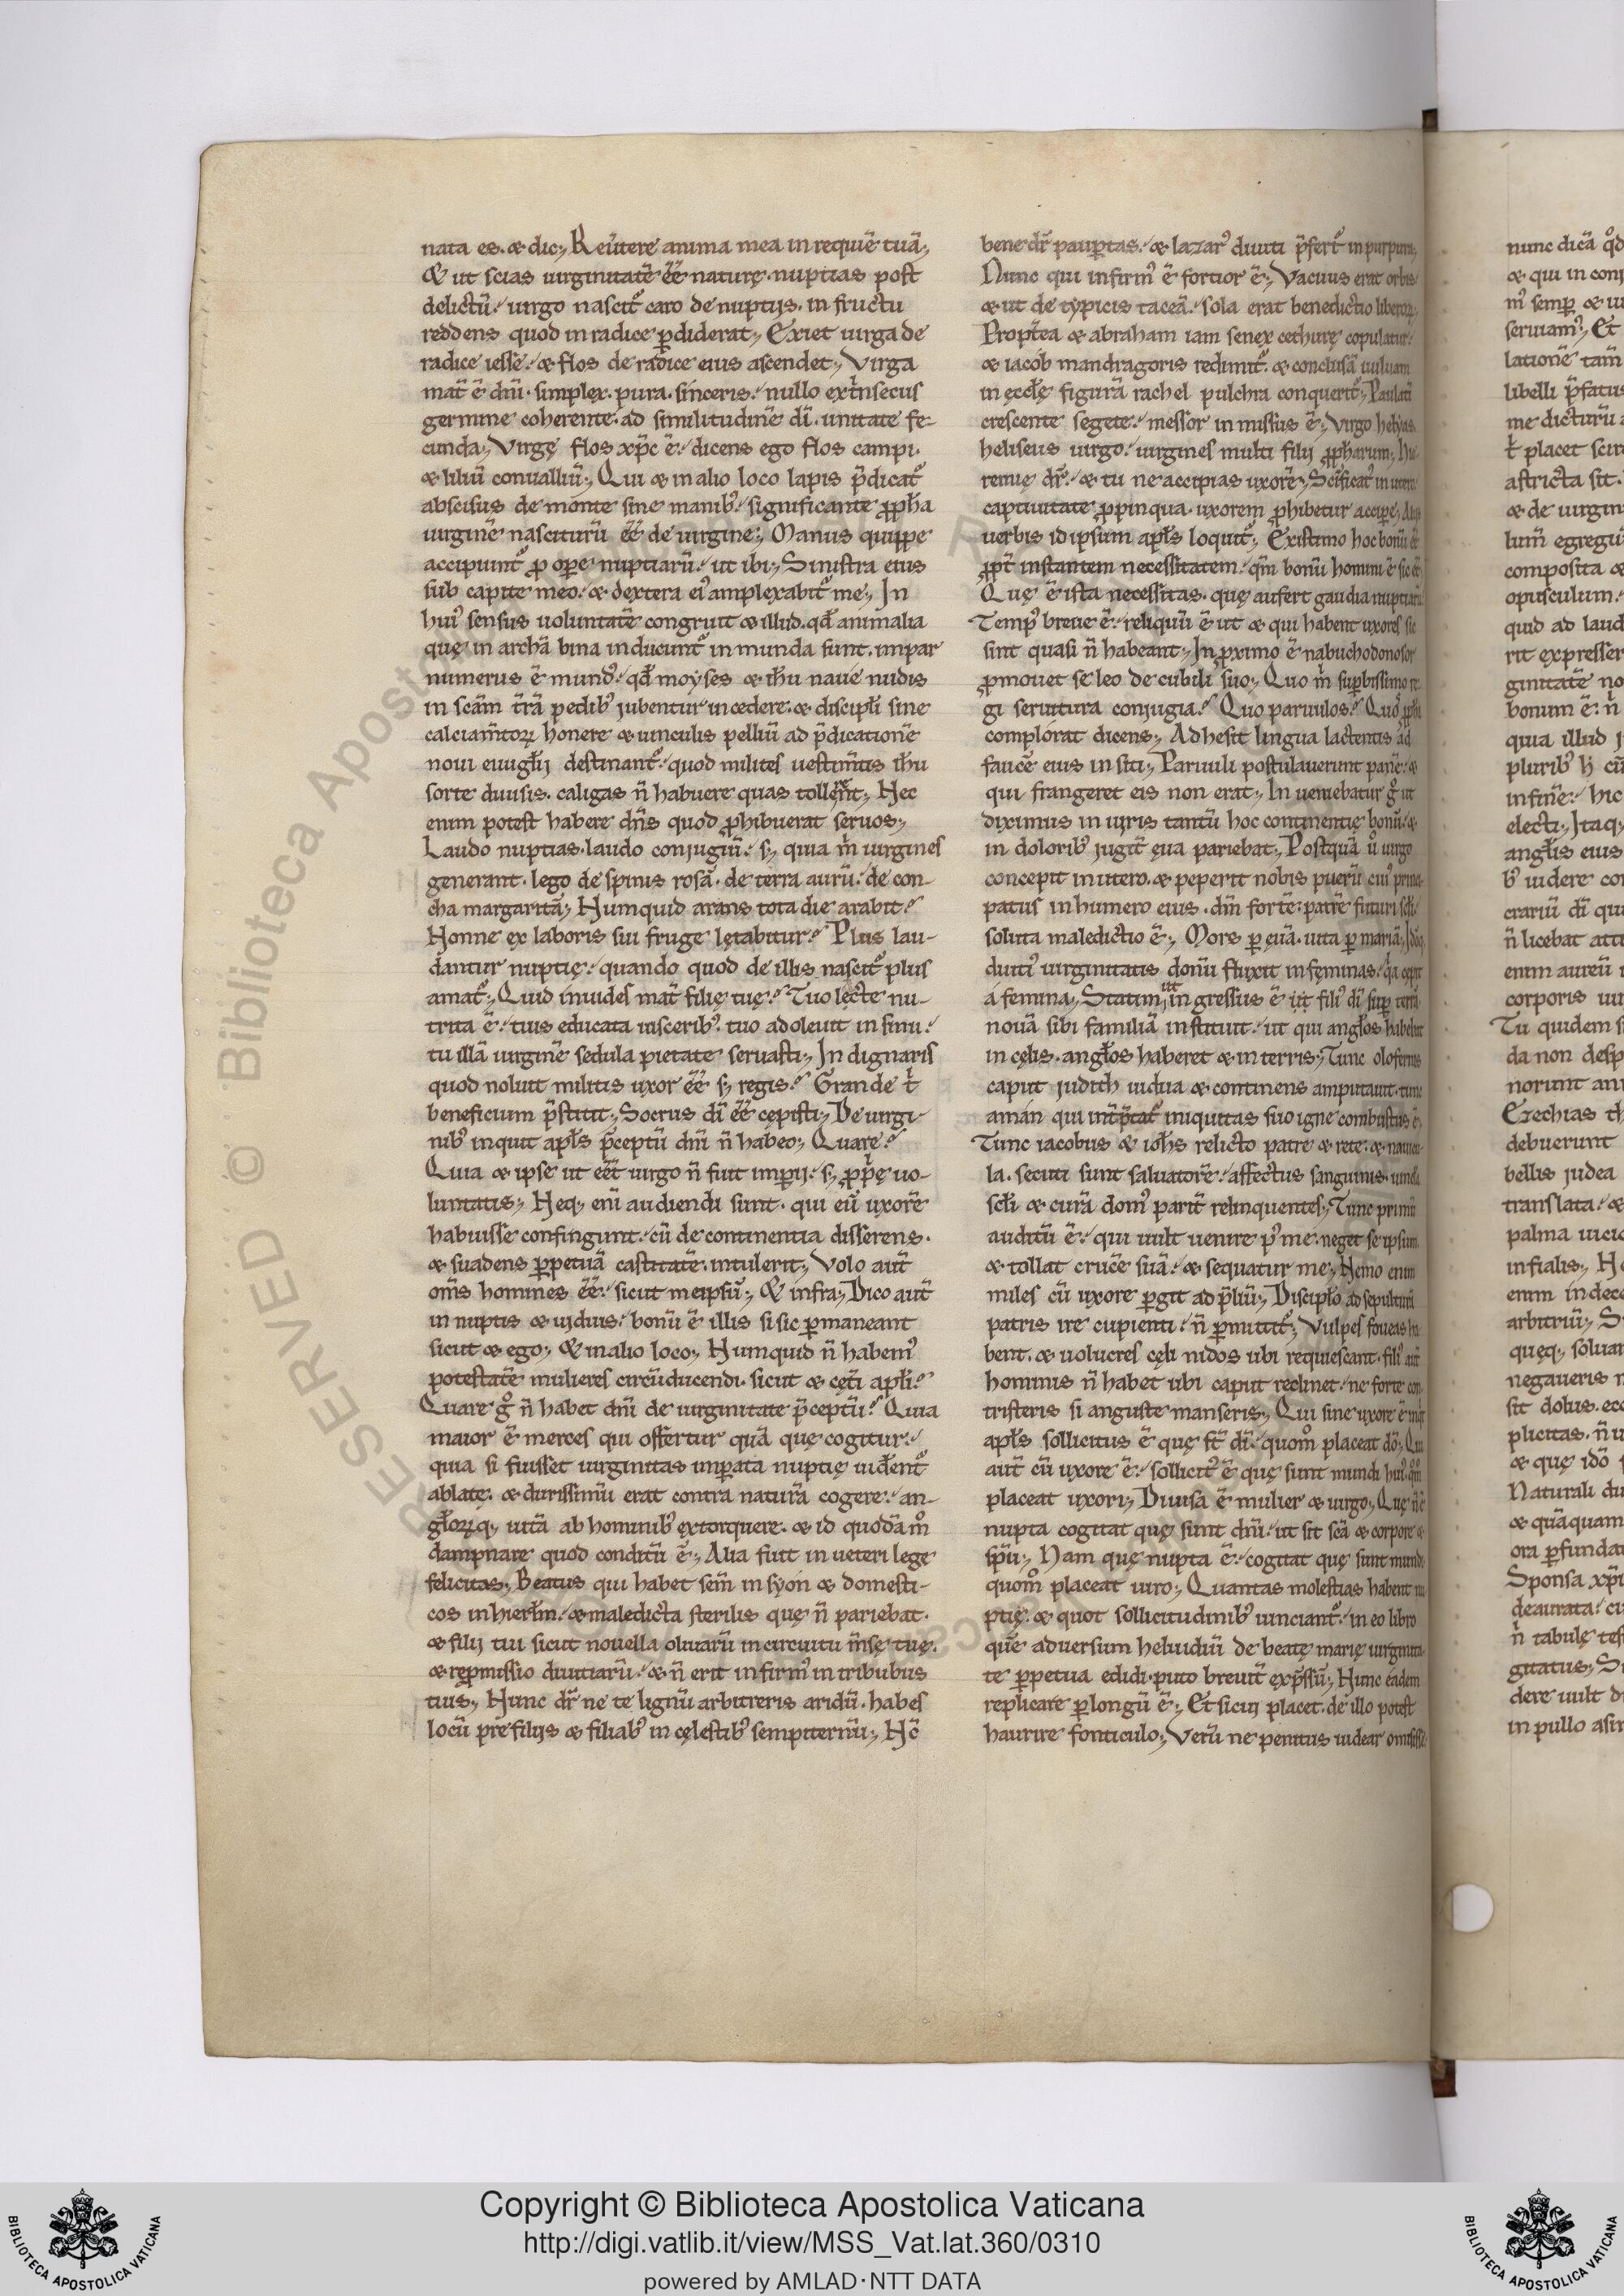 nata es. & dic; Reutere anima mea in requiē tuā;
& ut scias uirginitatē ēē naturę. nuptias post
delictū. uirgo nascit caro de nuptijs. in fructu
reddens quod in radice pdiderat; Exiet uirga de
radice iesse. & flos de radice eius ascendet; Virga
mat ē dnī. simplex. pura. sinceris. nullo extnsecus
germine coherente. ad similitudinē dī. unitate fe-
cunda; Virgę flos xpc ē. dicens ego flos campi.
& liliū conualliū; Qui & in alio loco lapis pdicat
abscisus de monte sine manib; significante propha
uirginē nasciturū ēē de uirgine; Manus quippe
accipiunt p ope nuptiarū. ut ibi; Sinistra eius
sub capite meo. & dextera ei amplexabit me; In
hui sensus uoluntatē congruit & illud. qd animalia
quę in archā bina inducunt in munda sunt. impar
numerus ē mund. qd moyses & ihu naue nudis
in scām trā pedib jubentur incedere. & discipli sine
calciamtorz honere & uinculis pelliū ad pdicationē
noui euuglij destinant. quod milites uestimtis ihu
sorte diuisis. caligas ñ habuere quas tollent; Nec
enim potest habere dns quod phibuerat seruos;
Laudo nuptias. laudo conjugiū. s; quia m uirgines
generant. lego de spinis rosā. de terra aurū. de con-
cha margaritā; Numquid arans tota die arabit?
Nonne ex laboris sui fruge lętabitur? Plus lau-
dantur nuptię. quando quod de illis nascit plus
amat; Quid inuides mat filię tuę? Tuo lęcte nu-
trita ē. tuis educata uisceribus. tuo adoleuit in sinu.
tu illā uirginē sedula pietate seruasti; Indignaris
quod noluit militis uxor ēē s; regis? Grande t
beneficium pstitit; Socrus dī ēē cępisti; De uirgi-
nib inquit apls pceptū dnī ñ habeo; Quare?
Quia & ipse ut eet uirgo ñ fuit impij. s; pppę uo-
luntatis; Neq; eni audiendi sunt. qui eū uxorē
habuisse confingunt. cū de continentia disserens.
& suadens ppetuā castitatē. intulerit; Volo aut
oms homines ēē. sicut meipsū; & infra; Dico aut
in nuptis & uiduis. bonū ē illis si sic pmaneant
sicut & ego; & in alio loco; Numquid ñ habem
potestatē mulieres circūducendi. sicut & cęti apli?
Quare g ñ habet dnī de uirginitate pceptū? Quia
maior ē merces qui offertur quā quę cogitur.
quia si fuisset uirginitas impata nuptię uident
ablatę. & durissimū erat contra naturā cogere. an-
glorzq; uitā ab hominib extorquere. & id quodā m
dampnare quod conditū ē; Alia fuit in ueteri lege
felicitas; Beatus qui habet sem in syon & domesti-
cos in hierlm. & maledicta sterilis quę ñ pariebat.
& filij tui sicut nouella oliuarū in circuitu msę tuę.
& repmissio diuitiarū. & ñ erit infirm in tribubus
tuis; Nunc dr ne te lignū arbitreris aridū. habes
locū pre filijs & filiab in cęlestib sempiternū; Nc
benedr pauptas. & lazar diuiti pfert in purpura;
Nunc qui infirm ē fortior ē; Vacuus erat orbis
& ut de typicis taceā. sola erat benedictio liberorz;
Proptea & abraham iam senex cethurę copulatur.
& iacob mandragoris redimit. & conclusā uuluam
in ęcclę figurā rachel pulchra conquerit; Paulati
crescente segete. messor in missus ē; Virgo helyas
heliseus uirgo. uirgines multi filij propharum; hie
remię dr. & tu ne accipias uxorē; Scificat in utero
captiuitate ppinqua. uxorem phibetur accipe;
uerbis id ipsum apls loquit; Existimo hoc bonū
ppt instantem necessitatem. qm bonū homini ē sic
Quę ē ista necessitas. quę aufert gaudia nuptiarū
Temp breue ē. reliquū ē ut & qui habent uxores sic
sint quasi ñ habeant; In pximo ē nabuchodonosor
pmouet se leo de cubili suo; Quo m supbissimo re-
gi seruitura conjugia? Quo paruulos? Quos ppha
complorat dicens; Adhesit lingua lactentis ad
faucē eius in siti; Paruuli postulauerunt panē. &
qui frangeret eis non erat; In ueniebatur g ut
diximus in uiris tantū hoc continentię bonū. &
in dolorib jugit ęua pariebat; Postquā u uirgo
concepit in utero. & peperit nobis puerū cui princi-
patus in humero eius. dm fortē. patrē futuri scli.
soluta maledictio ē; Mors p euā. uita p mariā;
diuiti uirginitatis donū fluxit in feminas. qa cepit
a femina; Statim ut in gressus ē fili dī sup terrā
nouā sibi familiā instituit. ut qui anglos habebat
in cęlis. anglos haberet & in terris; Tunc olofernis
caput judith uidua & continens amputauit. tunc
aman qui intptat iniquitas suo igne combustus ē.
Tunc iacobus & iohs relicto patre & rete. & nauicu-
la. secuti sunt saluatorē. affectus sanguinis. uincla
scli & curā dom parit relinquentes; Tunc primū
auditū ē. qui uult uenire p me. neget se ipsum
& tollat crucē suā. & sequatur me; Nemo enim
miles cū uxore pgit ad pliū; Disciplo ad sepulturā
patris ire cupienti. ñ pmittit; Vulpes foueas ha
bent. & uolucres cęli nidos ubi requiescant. fili aut
hominis ñ habet ubi caput reclinet. ne forte con-
tristeris si anguste manseris; Qui sine uxore ē inqt
apls sollicitus ē quę st dī. quom placeat dō; Qui
aut cū uxore ē. sollicit ē quę sunt mundi hui. qm
placeat uxori; Diuisa ē mulier & uirgo; Quę ñ ē
nupta cogitat quę sunt dnī. ut sit scā & corpore &
spū; Nam quę nupta ē. cogitat quę sunt mundi
quom placeat uiro; Quantas molestias habent nu
ptię. & quot sollicitudinib uinciant. in eo libro
quē aduersum heluidiū de beatę marię uirginita-
te ppetua edidi. puto breuit expssū; Nunc eadem
replicare plongū ē; Et sicuj placet. de illo potest
haurire fonticulo; Verū ne penitus uidear omisisse
nunc dicā qd
& qui in con
m semp & ui
seruiam; Et
lationē tam
libelli pfatus
me dicturū a
t placet scir
astricta sit.
& de uirgin
lum egregiū
composita &
opusculum.
quid ad laud
rit expresser
ginitatē no
bonum ē. ñ
quia illud
plurib h cū
infine. hic
electi; Itaq;
anglis eius
b uidere co
crariū dī qu
ñ licebat atti
enim aureū
corporis uir
Tu quidem
da non desp
norunt an
Ezechias th
debuerunt
bellis judea
translata. &
palma uici
infialis; N
enim indec
arbitriū; S
quęq; solua
negaueris n
sit dolus. ecc
plicitas. ñ u
& quę idō
Naturali du
& quāquam
ora pfundat
Sponsa xpi
deaurata. cu
ñ tabulę tes
gitatus; S
dere uult di
in pullo asin
RESERVED © Biblioteca Apostolica Vaticana
Copyright © Biblioteca Apostolica Vaticana
http://digi.vatlib.it/view/MSS_Vat.lat.360/0310
powered by AMLAD·NTT DATA
BIBLIOTECA APOSTOLICA VATICANA
BIBLIOTECA APOSTOLICA VATICANA